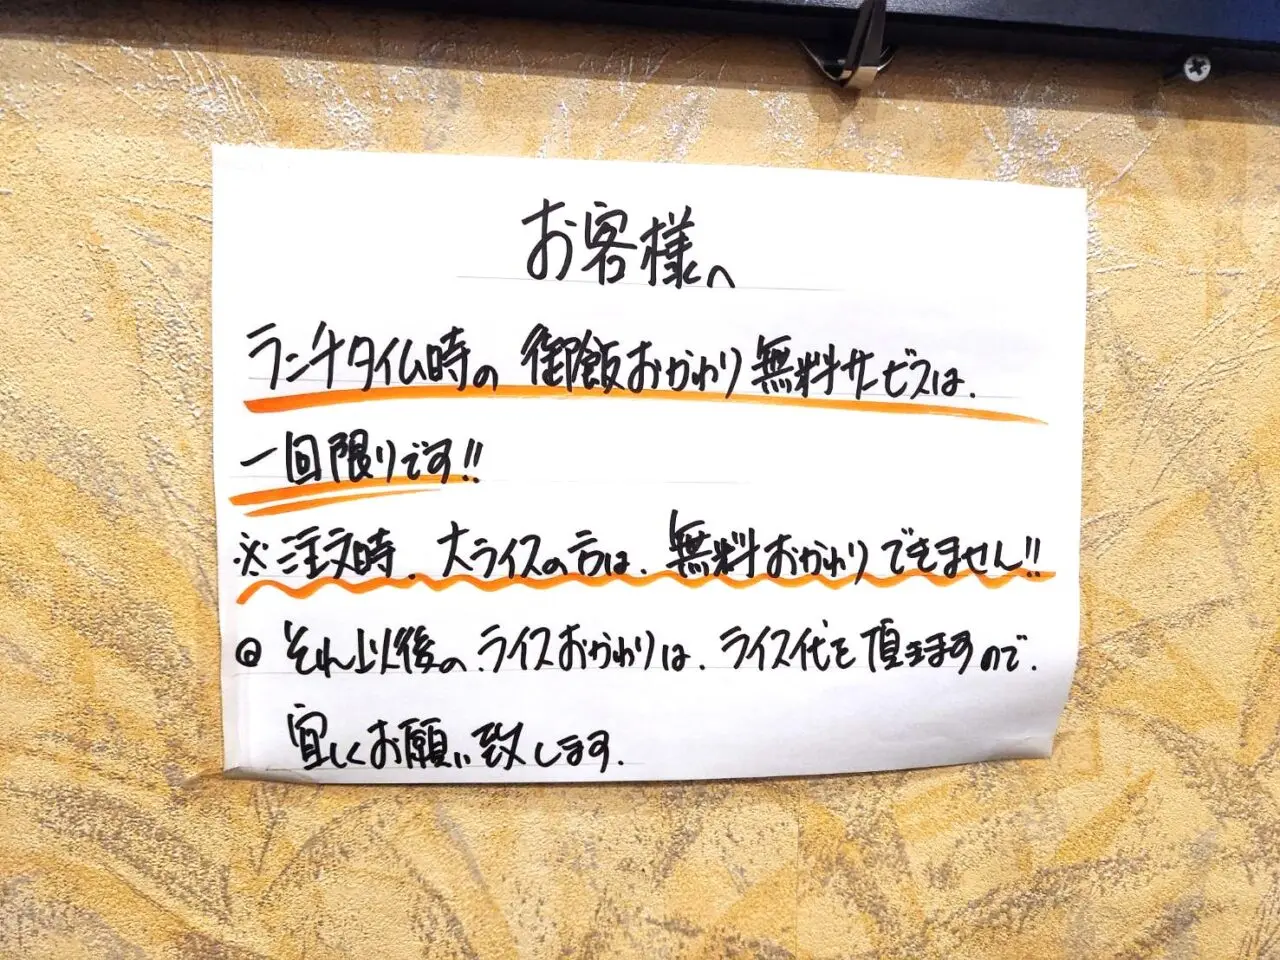 お客様へ
ランチタイム時の御飯おかわり無料サービスは、
一回限りです!!
※注文時、大ライスの方は、無料おかわりできません!!
◎それ以後の、ライスおかわりは、ライス代を頂きますので、
宜しくお願い致します。